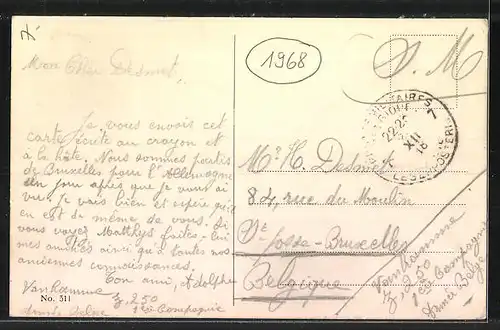 Mon Cher Desmet,
Je vous envoit cet
carte écrite au crayon et
à la hâte. Nous sommes partis
de Bruxelles pour l'Allemagne
un jour après que je vous ai
vu. Je vais bien et espère qu'il
en est de même de vous. Si
vous voyez Matthys faites-lui
mes amitiés ainsi qu'à toutes nos
anciennes connaissances.
Ton ami, Adolphe
Vanhamme
Z.250
1ère Compagnie
armée belge
No. 311
1968
S. M
MILITAIRES
7
22-23
XII
18
Mr. H. Desmet
84, rue du Moulin
St Josse-Bruxelles
Belgique
Vanhamme
Z.250
1ère Compagnie
Armée Belge